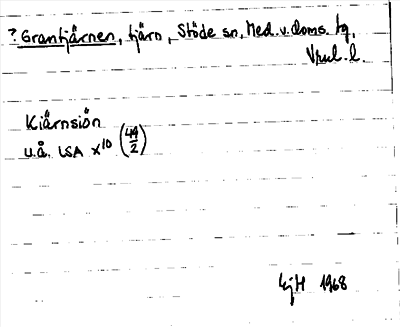 ? Grantjärnen, tjärn, Stöde sn, Med. v. doms. tg,
Vnrl. l.
Kiärnsiön
u.å. LSA x10 (49/2)
EjH 1968